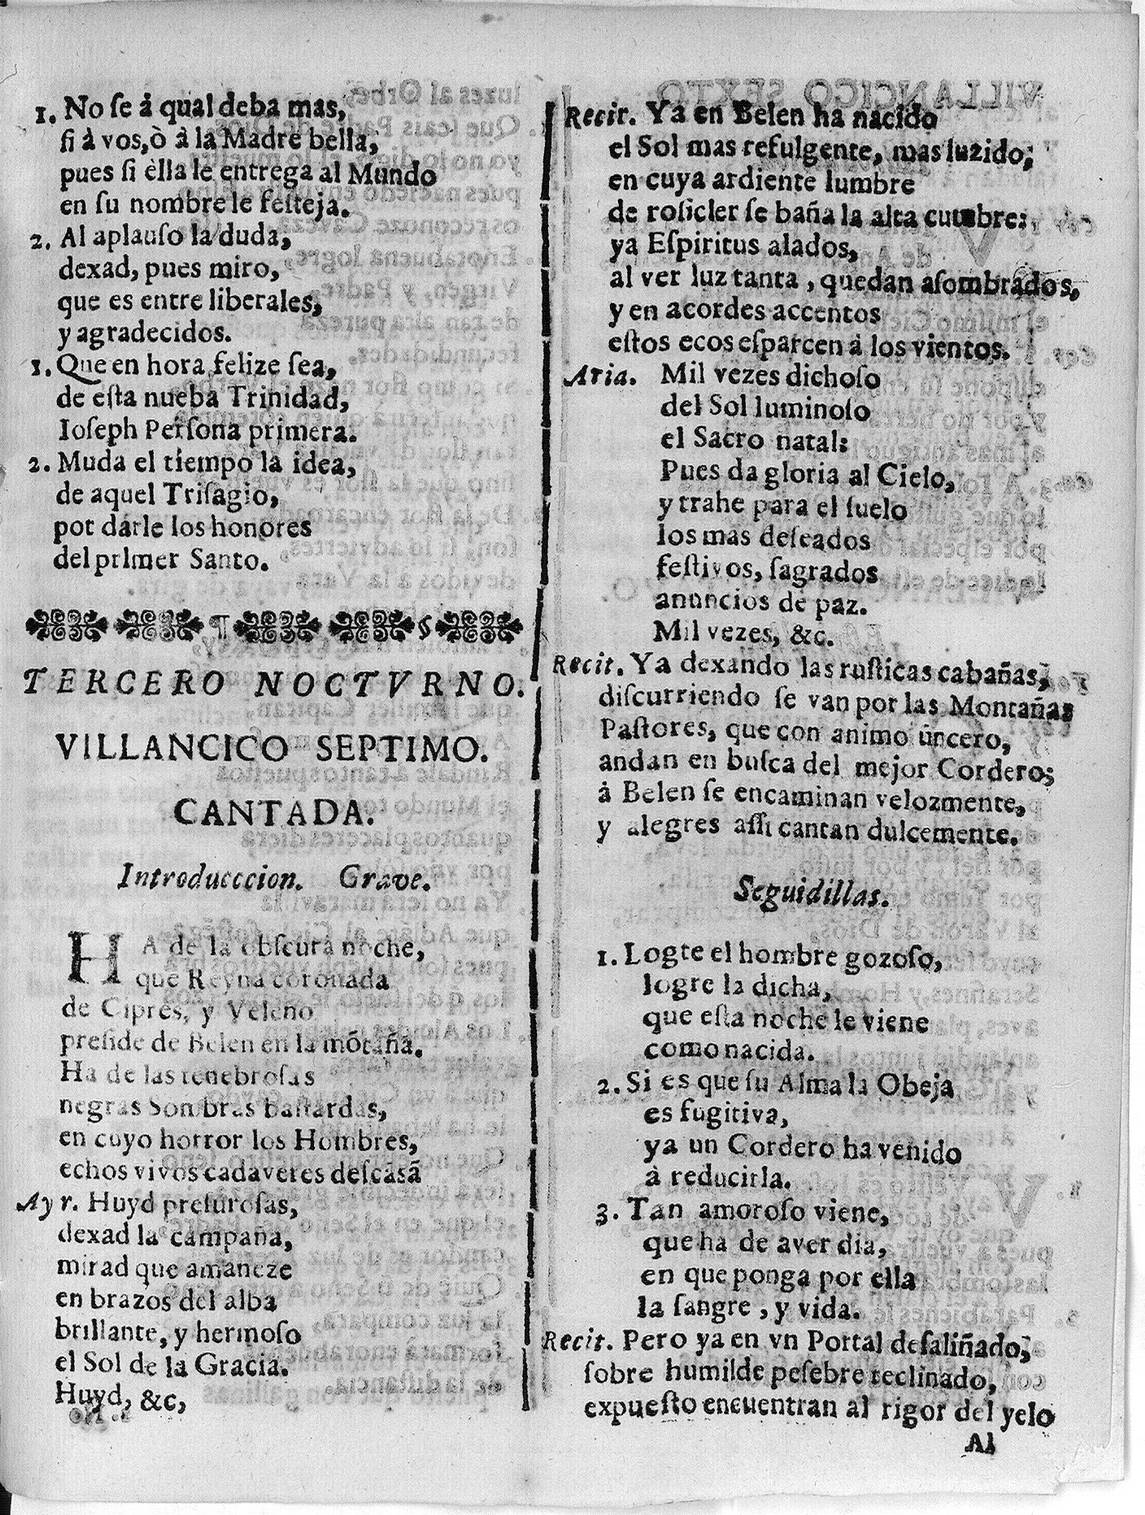 1. No ſe á qual deba mas,
ſi á vos, ò â la Madre bella,
pues ſi èlla le entrega al Mundo
en ſu nombre le feſteja.
2. Al aplauſo la duda,
dexad, pues miro,
que es entre liberales,
y agradecidos.
1. Que en hora felize ſea,
de eſta nueba Trinidad,
Ioſeph Perſona primera.
2. Muda el tiempo la idea,
de aquel Triſagio,
por dárle los honores
del prImer Santo.
TERCERO NOCTVRNO.
VILLANCICO SEPTIMO.
CANTADA.
Introducccion. Grave.
HA de la obſcura noche,
que Reyna coronada
de Cipres, y Veleño
preſide de Belen en la mõtaña.
Ha de las tenebroſas
negras Sombras baſtardas,
en cuyo horror los Hombres,
echos vivos cadaveres deſcasã
Ayr. Huyd preſuroſas,
dexad la campaña,
mirad que amaneze
en brazos del alba
brillante, y hermoſo
el Sol de la Gracia.
Huyd, &c,
Recit. Ya en Belen ha nacido
el Sol mas refulgente, mas luzido;
en cuya ardiente lumbre
de roſicler ſe baña la alta cumbre:
ya Eſpiritus alados,
al ver luz tanta, quedan aſombrados,
y en acordes accentos
eſtos ecos eſparcen á los vientos.
Aria. Mil vezes dichoſo
del Sol luminoſo
el Sacro natal:
Pues da gloria al Cielo,
y trahe para el ſuelo
los mas deſeados
feſtivos, ſagrados
anuncios de paz.
Mil vezes, &c.
Recit. Ya dexando las ruſticas cabañas,
diſcurriendo ſe van por las Montañas
Paſtores, que con animo ſincero,
andan en buſca del mejor Cordero;
â Belen ſe encaminan velozmente,
y alegres aſſi cantan dulcemente.
Seguidillas.
1. Logre el hombre gozoſo,
logre la dicha,
que eſta noche le viene
como nacida.
2. Si es que ſu Alma la Obeja
es fugitiva,
ya un Cordero ha venido
à reducirla.
3. Tan amoroſo viene,
que ha de aver dia,
en que ponga por ella
la ſangre, y vida.
Recit. Pero ya en vn Portal deſaliñado,
ſobre humilde peſebre reclinado,
expueſto encuentran al rigor del yelo
Al